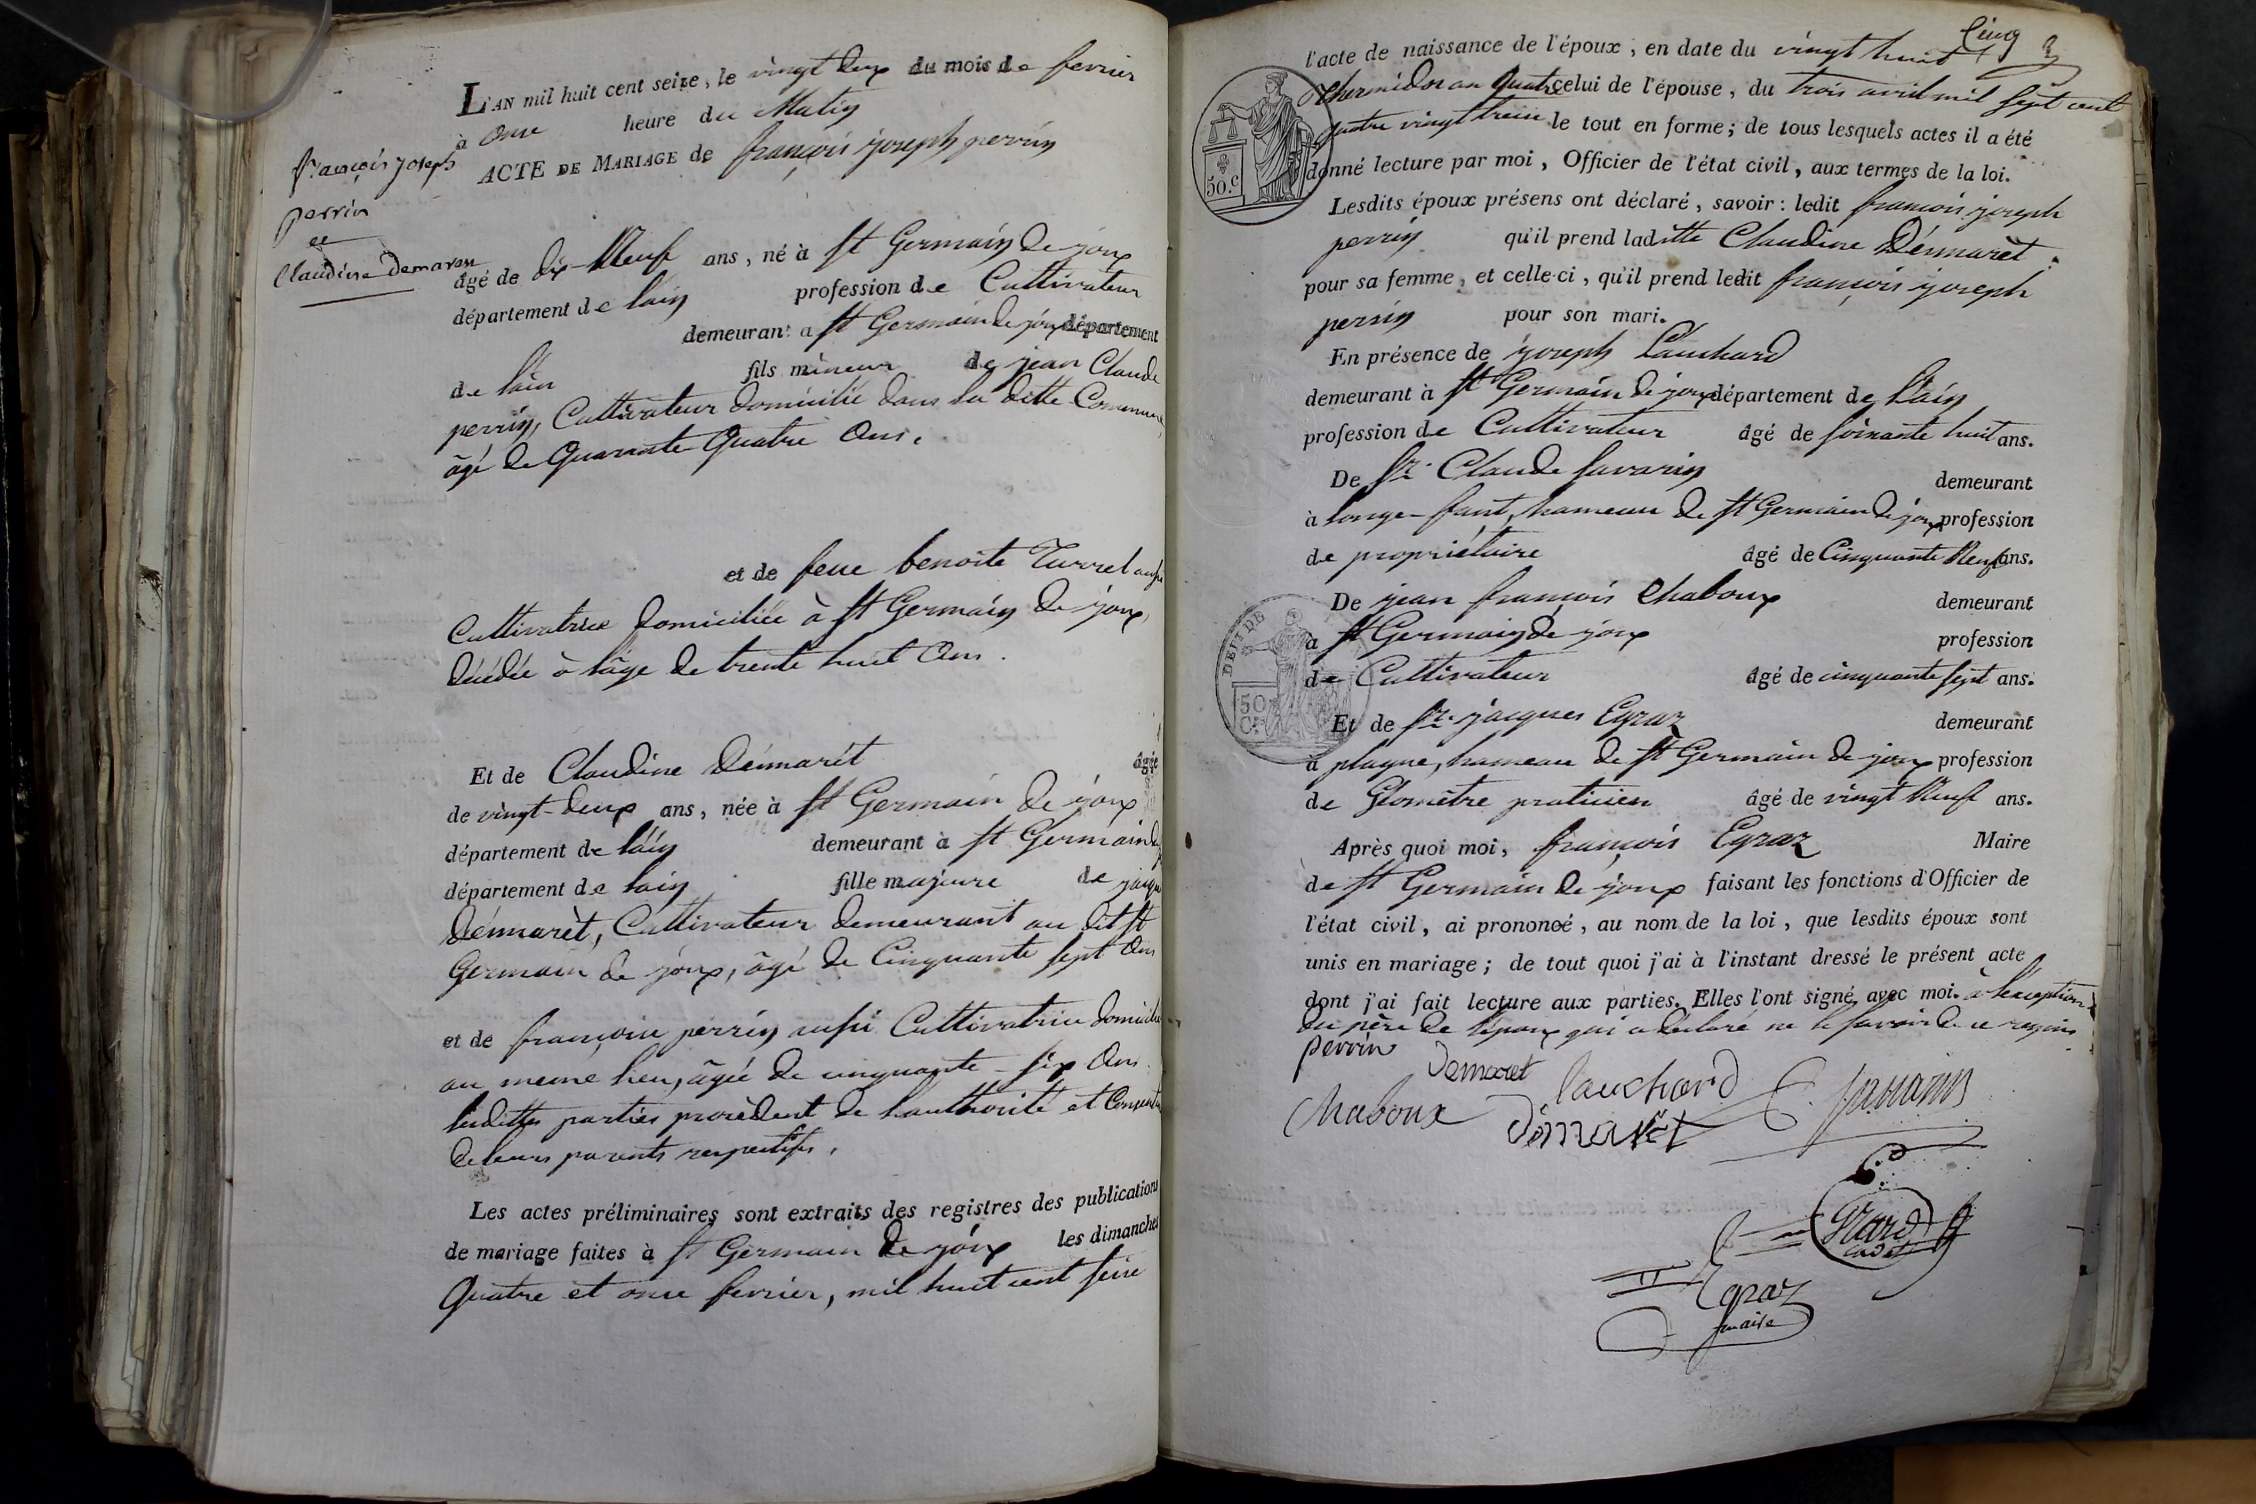 L'AN mil huit cent seize, le vingt deux du mois de fevrier
à onze heure du Matin
ACTE DE MARIAGE de françois joseph perrin
françois joseph
perrin
et
Claudine demaret
âgé de dix-Neuf ans, né à St Germain de joux
département de lain profession de Cultivateur
demeurant a St Germain de joux département
de lain fils mineur de jean Claude
perrin, Cultivateur domicilié dans la ditte Commune,
âgé de Quarante Quatre Ans.
et de feue benoite Turrel aussi
Cultivatrice domiciliée à St Germain de joux,
décédée à lâge de trente huit Ans.
Et de Claudine Démarét âgée
de vingt-deux ans, née à St Germain de joux
département de lain demeurant à St Germain de
département de lain fille majeure de jacques
Démarèt, Cultivateur demeurant au dit St
Germain de joux, âgé de Cinquante sept Ans
et de françoise perrin aussi Cultivatrice domiciliée
au meme lieu, âgée de cinquante-six Ans.
lesdittes parties procèdent de lauthorité et Consentement
de leurs parents respectifs.
Les actes préliminaires sont extraits des registres des publications
de mariage faites à St Germain de joux les dimanches
Quatre et onze fevrier, mil huit cent seize
Cinq
l'acte de naissance de l'époux, en date du vingt huit
thermidor an Quatre celui de l'épouse, du trois avril mil sept cent
quatre vingt treize le tout en forme; de tous lesquels actes il a été
donné lecture par moi, Officier de l'état civil, aux termes de la loi.
50.c
Lesdits époux présens ont déclaré, savoir: ledit françois joseph
perrin qu'il prend laditte Claudine Démarèt
pour sa femme, et celle-ci, qu'il prend ledit françois joseph
perrin pour son mari.
En présence de joseph Lauchard
demeurant à St Germain de joux département de Lain
profession de Cultivateur âgé de soixante huit ans.
De Sr. Claude Savarin demeurant
à longe-fant, hameau de St Germain de joux profession
de propriétaire âgé de Cinquante Neuf ans.
De jean françois Chaboux demeurant
à St Germain de joux profession
de Cultivateur âgé de cinquante sept ans.
DEMI DE
50
C.
Et de Sr. jacques Egraz demeurant
à plagne, hameau de St Germain de joux profession
de Géomètre praticien âgé de vingt Neuf ans.
Après quoi moi, françois Egraz Maire
de St Germain de joux faisant les fonctions d'Officier de
l'état civil, ai prononcé, au nom de la loi, que lesdits époux sont
unis en mariage; de tout quoi j'ai à l'instant dressé le présent acte
dont j'ai fait lecture aux parties. Elles l'ont signé avec moi. à l'exception
du père de lépoux qui a declaré ne le savoir de ce requis.
perrin
Demaret lauchard
Chaboux Démarèt C. Savarin
Egraz
maire